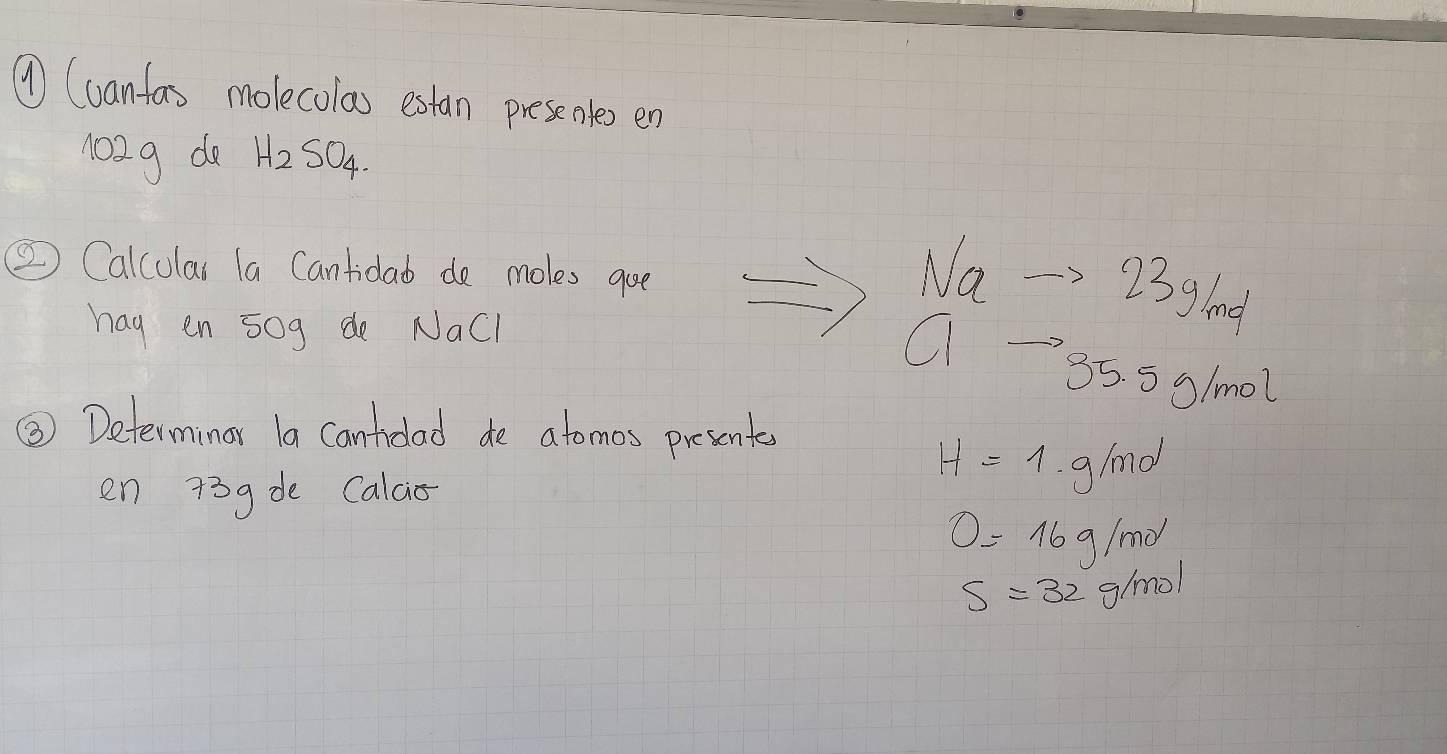 ① Cuantas moleculas estan presentes en
102g de H2SO4.
② Calcular la Cantidad de moles que
hay en 50g de NaCl
⇒ Na → 23g/mol
Cl → 35.5 g/mol
③ Determinar la Cantidad de atomos presentes
en 73g de Calcio
H = 1. g/mol
O = 16 g/mol
S = 32 g/mol